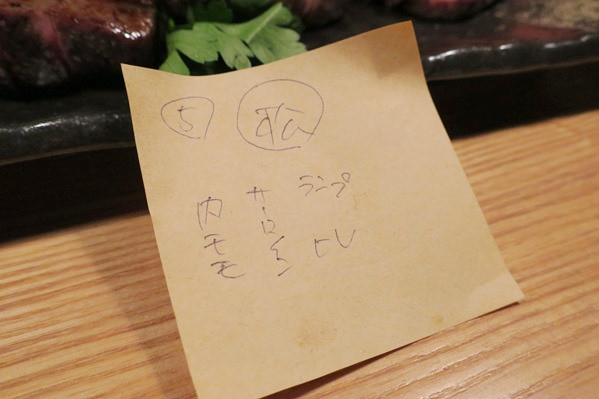 5 松
内モモ
サーロイン
ランプ
ヒレ